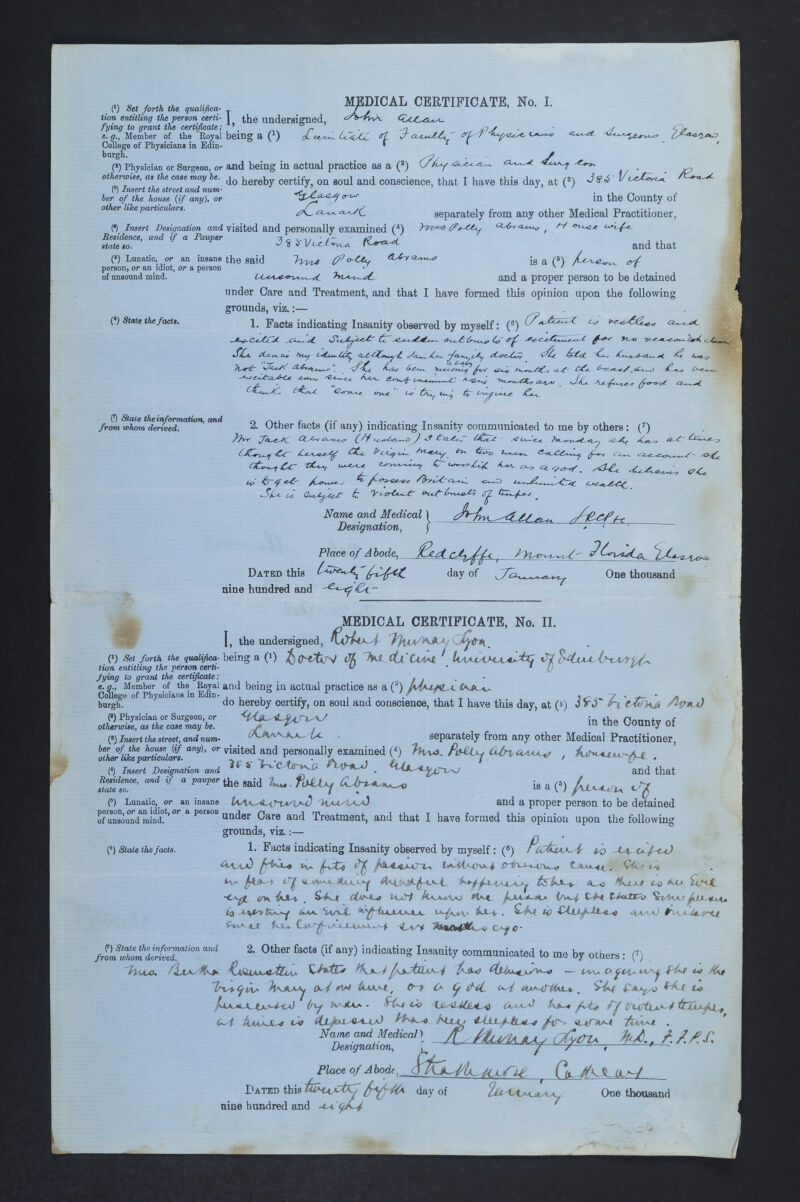 MEDICAL CERTIFICATE, No. I.
(¹) Set forth the qualifica-
tion entitling the person certi-
fying to grant the certificate;
e.g., Member of the Royal
College of Physicians in Edin-
burgh.
I, the undersigned, John Allan
being a (¹) Licentiate of Faculty of Physicians and Surgeons Glasgow,
(²) Physician or Surgeon, or
otherwise, as the case may be.
and being in actual practice as a (²) Physician and Surgeon
(³) Insert the street and num-
ber of the house (if any), or
other like particulars.
do hereby certify, on soul and conscience, that I have this day, at (³) 385 Victoria Road
Glasgow in the County of
Lanark separately from any other Medical Practitioner,
(⁴) Insert Designation and
Residence, and if a Pauper
state so.
visited and personally examined (⁴) Mrs Polly Abrams, House wife
385 Victoria Road and that
(⁵) Lunatic, or an insane
person, or an idiot, or a person
of unsound mind.
the said Mrs Polly Abrams is a (⁵) person of
unsound mind and a proper person to be detained
under Care and Treatment, and that I have formed this opinion upon the following
grounds, viz.:—
(⁶) State the facts.
1. Facts indicating Insanity observed by myself: (⁶) Patient is restless and
excited and subject to sudden outbursts of excitement for no reason
She denies my identity although I am her family doctor. She told her husband he was
not "Jack Abrams". She has been nursing a baby for six months at the breast and has been
excitable ever since her confinement six months ago. She refuses food and
thinks that "some one" is trying to injure her
(⁷) State the information, and
from whom derived.
2. Other facts (if any) indicating Insanity communicated to me by others: (⁷)
Mr Jack Abrams (Husband) states that since Monday she has at times
thought herself the Virgin Mary, on two men calling for an account she
thought they were coming to worship her as a god. She believes she
is to get power to possess Britain and unlimited wealth.
She is subject to violent outbursts of temper.
Name and Medical
Designation,
John Allan
Place of Abode, Redclyffe, Mount Florida Glasgow
DATED this twenty fifth day of January One thousand
nine hundred and eight
MEDICAL CERTIFICATE, No. II.
I, the undersigned, Robert Murray Lyon.
(¹) Set forth the qualifica-
tion entitling the person certi-
fying to grant the certificate;
e.g., Member of the Royal
College of Physicians in Edin-
burgh.
being a (¹) Doctor of Medicine, University of Edinburgh
and being in actual practice as a (²) physician
(²) Physician or Surgeon, or
otherwise, as the case may be.
do hereby certify, on soul and conscience, that I have this day, at (³) 385 Victoria Road
Glasgow in the County of
(³) Insert the street, and num-
ber of the house (if any), or
other like particulars.
Lanark separately from any other Medical Practitioner,
visited and personally examined (⁴) Mrs. Polly Abrams, housewife.
(⁴) Insert Designation and
Residence, and if a pauper
state so.
385 Victoria Road, Glasgow and that
the said Mrs. Polly Abrams is a (⁵) person of
(⁵) Lunatic, or an insane
person, or an idiot, or a person
of unsound mind.
unsound mind and a proper person to be detained
under Care and Treatment, and that I have formed this opinion upon the following
grounds, viz.:—
(⁶) State the facts.
1. Facts indicating Insanity observed by myself: (⁶) Patient is excited
and flies in fits of passion without obvious cause. She is
in fear of something dreadful happening to her as there is an Evil
eye on her. She does not know the person but she states some person
is exerting an Evil influence upon her. She is sleepless and
since her confinement six months ago.
(⁷) State the information and
from whom derived.
2. Other facts (if any) indicating Insanity communicated to me by others: (⁷)
Mrs. Bertha Rosenstein states that patient has delusions — imagining she is the
Virgin Mary at one time, or a god at another. She says she is
persecuted by man. She is restless and has fits of violent temper,
at times is depressed & has been sleepless for some time.
Name and Medical
Designation,
R Murray Lyon, M.D., F.F.P.S.
Place of Abode, Strathmore, Cathcart
DATED this twenty fifth day of January One thousand
nine hundred and eight